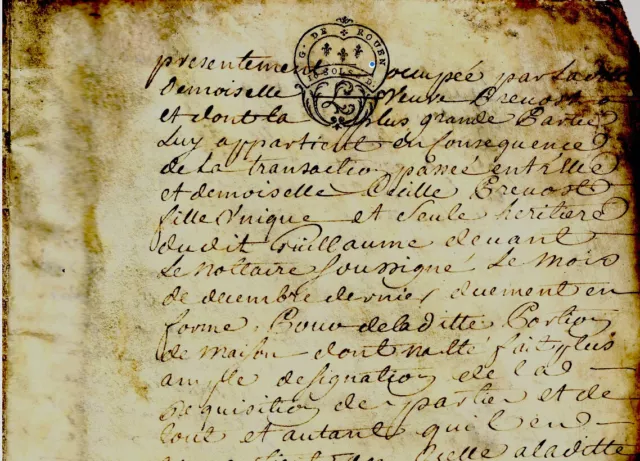 G. DE ROUEN
SOLS
presentement occupée par la ditte
Demoiselle Veuve Prevost
et dont la plus grande Partie
Luy appartient en Consequence
de La transaction passée entr'elle
et demoiselle Cecille Prevost
fille Unique et Seule heritiere
dudit Guillaume devant
Le nottaire Soussigné Le mois
de decembre dernier duement en
forme, Pour de laditte Portion
de maison dont na été fait plus
ample designation de la
Requisition des parties et de
tout et autant qu'il en
aladitte